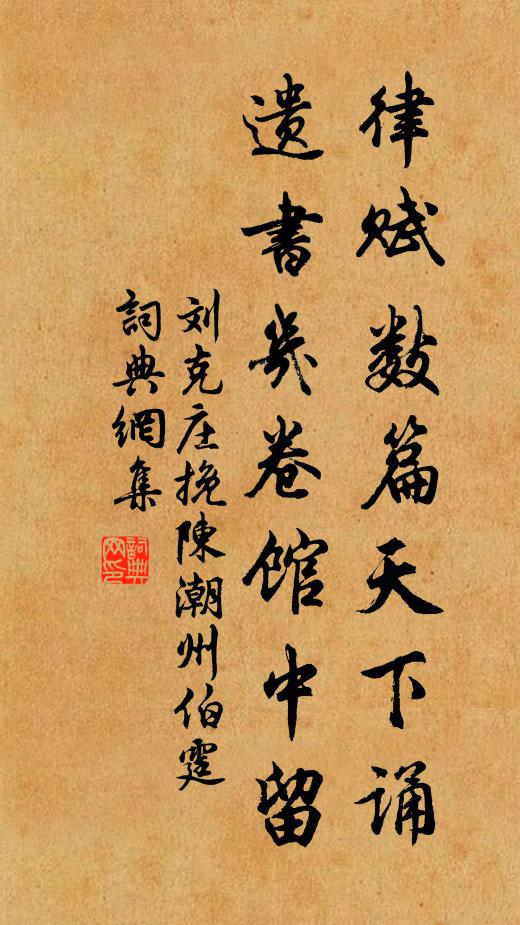 律赋数篇天下诵
遗書幾卷馆中留
刘克庄挽陳潮州伯霆
詞典網集
詞典网印